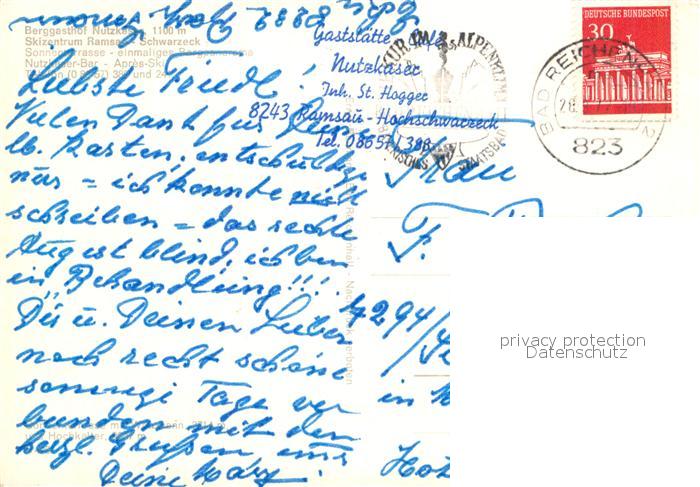 Berggasthof Nutzkaser 1100 m
Skizentrum Ramsau - Schwarzeck
Sonnenterrasse - einmaliges Bergpanorama
Nutzkaser-Bar - Après-Ski
Telefon (0 86 57) 388 und 24
Gaststätte Café
Nutzkaser
Inh. St. Hogger
8243 Ramsau - Hochschwarzeck
Tel. 08657 / 388
KUR IM ALPENKLIMA
BAYERISCHES STAATSBAD
DEUTSCHE BUNDESPOST
30
BAD REICHENHALL 2
823
Liebste Friedl!
Vielen Dank für Deine
lb. Karten, entschuldige
nur = ich konnte nicht
schreiben = das rechte
Aug ist blind, ich bin
in Behandlung!!!
Dir u. Deinen Lieben
noch recht schöne
sonnige Tage ver
bunden mit den
herzl. Grüßen
Deine Mary!
Frau
F.
7294/
in
privacy protection
Datenschutz